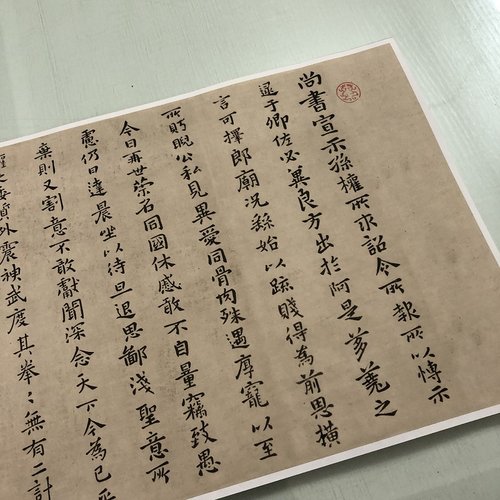 尚書宣示孫權所求詔令所報所以愽示
逮于卿佐必冀良方出於阿是芻蕘之
言可擇郎廟況繇始以疏賤得為前恩橫
所眄睨公私見異愛同骨肉殊遇厚寵以至
今日再世榮名同國休慼敢不自量竊致愚
慮仍日達晨坐以待旦退思鄙淺聖意所
棄則又割意不敢獻聞深念天下今為已平
權之委質外震神武度其拳〻無有二計